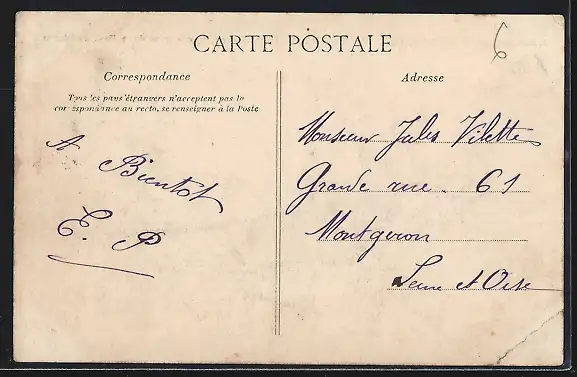 6
CARTE POSTALE
Correspondance
Tous les pays étrangers n'acceptent pas la
correspondance au recto, se renseigner à la Poste
A
Bientôt
E. P
Adresse
Monsieur Jules Vilette
Grande rue. 61
Montgeron
Seine et Oise